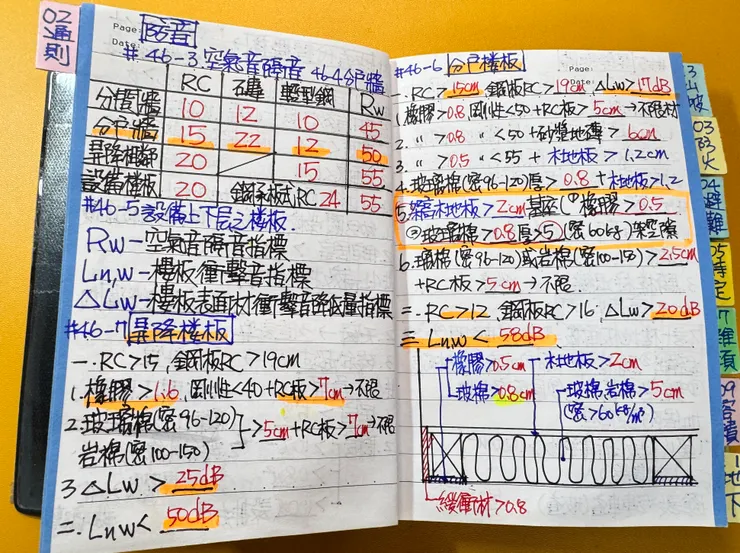 02
通則
Page:
Date:
防音
#46-3 空氣音隔音 46-4分戶牆
RC 石專 輕型鋼 Rw
分間牆 10 12 10 45
分戶牆 15 22 12 50
昇降機鄰 20 15 55
設備樓板 20 鋼承板式RC 24 55
#46-5 設備上下層之樓板.
Rw-空氣音隔音指標
Ln,w-樓板衝擊音指標
△Lw-樓板表面材衝擊音降低量指標
#46-7 昇降樓板
一.RC>15, 鋼板RC>19cm
1.橡膠>1.6, 剛性<40+RC板>7cm→不限
2.玻璃棉(密96-120)
岩棉(密100-150)
>5cm+RC板>7cm→不限
3.△Lw > 25dB
二.Lnw< 50dB
#46-6 分戶樓板
Page:
一.RC>15cm 鋼板RC>19cm △Lw>17dB
1.橡膠>0.8 剛性<50+RC板>5cm→不限材
2. 〃 >0.8 〃 <50+砂漿地磚> 6cm
3. 〃 >0.5 〃 <55 + 木地板>1.2cm
4.玻璃棉(密96-120)厚> 0.8 +木地板>1.2
5.架高木地板>2cm 基座(①橡膠>0.5
②玻璃棉>0.8厚>5(密60kg)架空隙
6.玻棉(密96-120)或岩棉(密100-150)>2.5cm
+RC板>5cm→不限.
二.RC>12,鋼板RC>16,△Lw>20dB
三 Lnw< 58dB
橡膠>0.5cm
木地板>2cm
玻棉>0.8cm
玻棉,岩棉>5cm
(密>60kg/m³)
緩衝材>0.8
03
防火
04
避難
05
特定
09
容積
地下